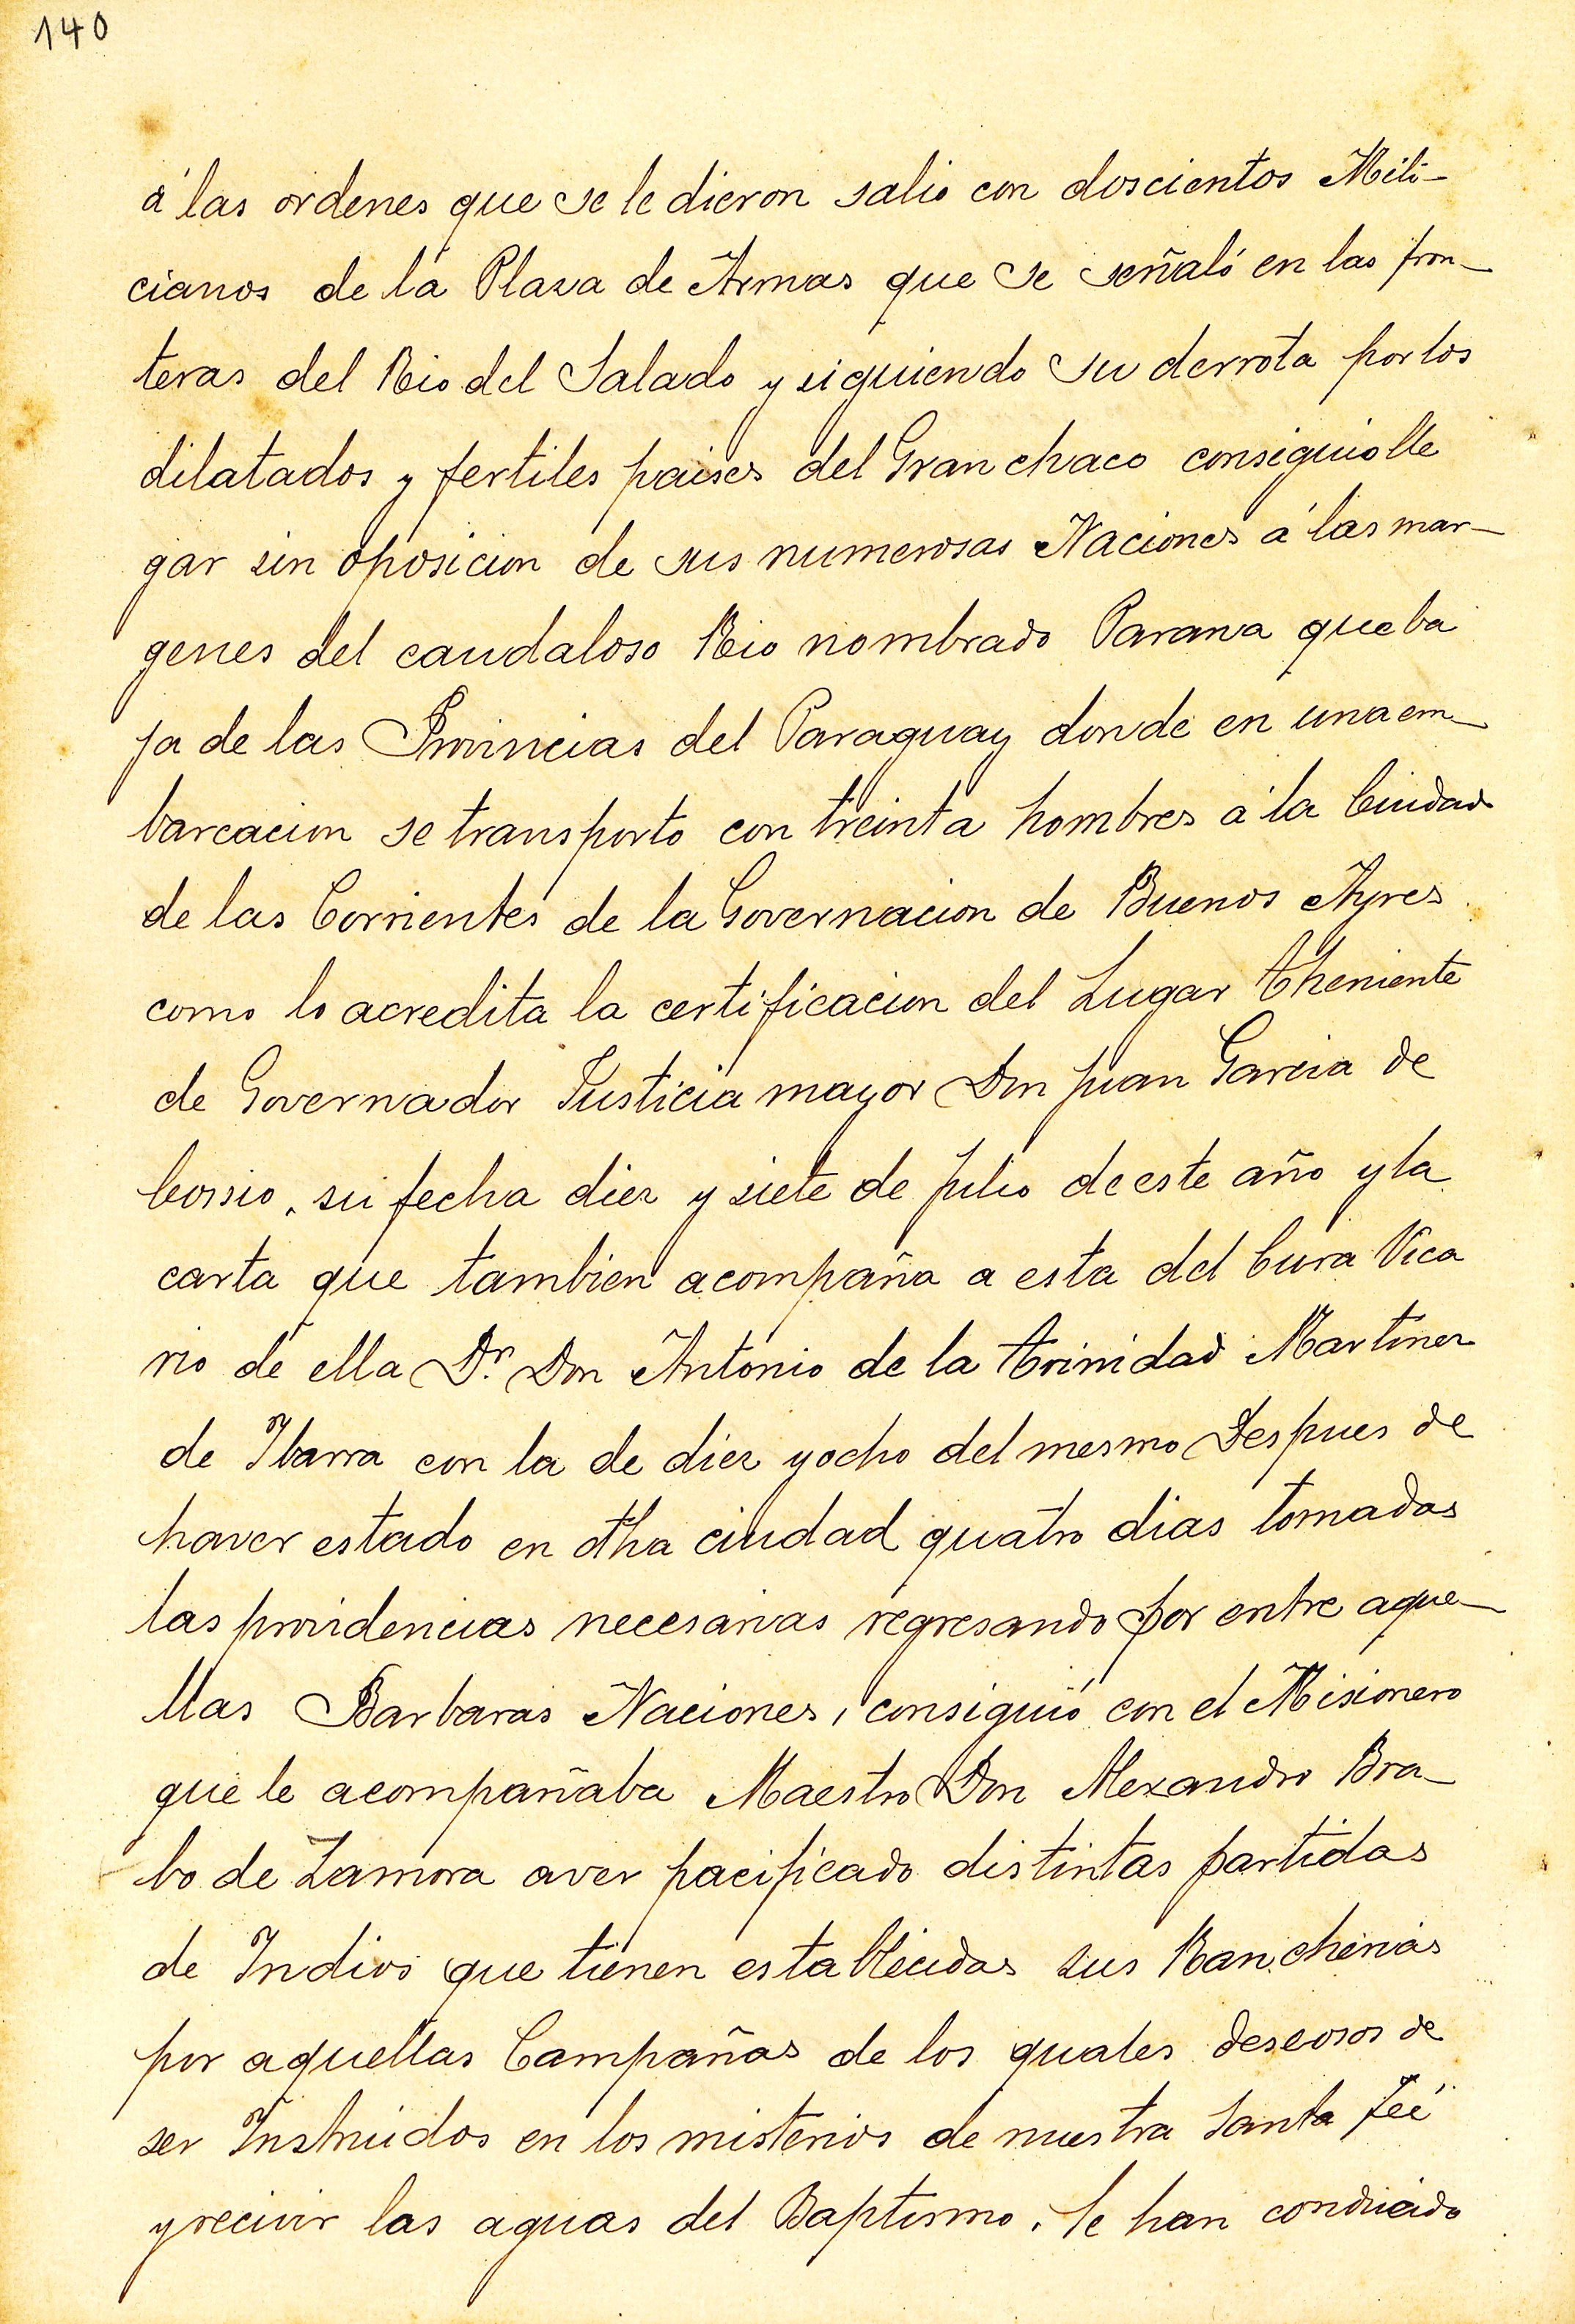 140
á las ordenes que se le dieron salio con doscientos Mili-
cianos de la Plaza de Armas que se señaló en las fron-
teras del Rio del Salado y siguiendo su derrota por los
dilatados y fertiles paises del Gran chaco consiguio lle
gar sin oposicion de sus numerosas Naciones á las mar-
genes del caudaloso Rio nombrado Parana que ba
ja de las Provincias del Paraguay donde en una em-
barcacion se transporto con treinta hombres á la Ciudad
de las Corrientes de la Governacion de Buenos Ayres
como lo acredita la certificacion del Lugar Theniente
de Governador Justicia mayor Don Juan Garcia de
Cossio, su fecha diez y siete de Julio de este año y la
carta que tambien acompaña a esta del Cura Vica
rio de ella Dr. Don Antonio de la Trinidad Martinez
de Ibarra con la de diez y ocho del mesmo Despues de
haver estado en dtha ciudad quatro dias tomadas
las providencias necesarias regresando por entre aque-
llas Barbaras Naciones, consiguió con el Misionero
que le acompañaba Maestro Don Alexandro Bra-
bo de Zamora aver pacificado distintas partidas
de Indios que tienen establecidas sus Rancherias
por aquellas Campañas de los quales deseosos de
ser Instruidos en los misterios de nuestra Santa Feé
y recivir las aguas del Baptismo, se han conducido